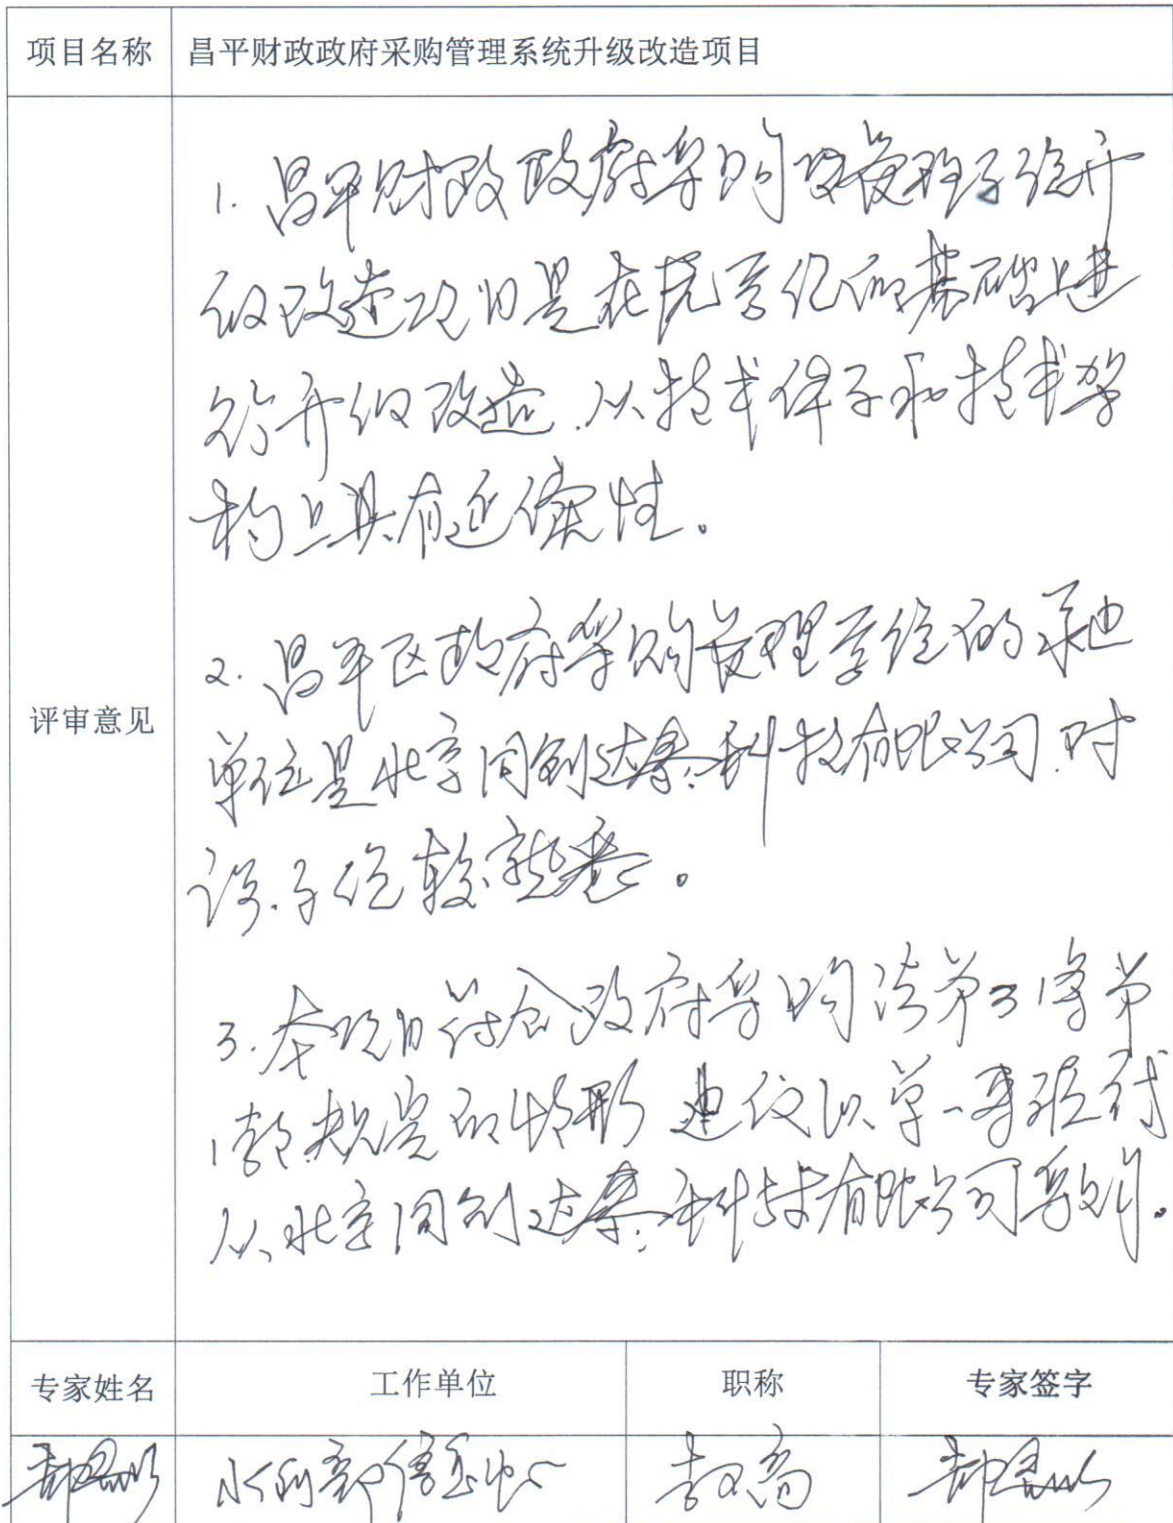 项目名称 昌平财政政府采购管理系统升级改造项目
评审意见
1. 昌平财政政府采购管理系统升
级改造项目是在原系统的基础上进
行升级改造.从技术体系和技术架
构上具有延续性。
2. 昌平区政府采购管理系统的承建
单位是北京同创达泰科技有限公司.对
该系统较熟悉。
3. 本项目符合政府采购法第31条第
1款规定的情形 建议以单一来源方式
从北京同创达泰科技有限公司采购。
专家姓名 工作单位 职称 专家签字
水利部信息中心 教高